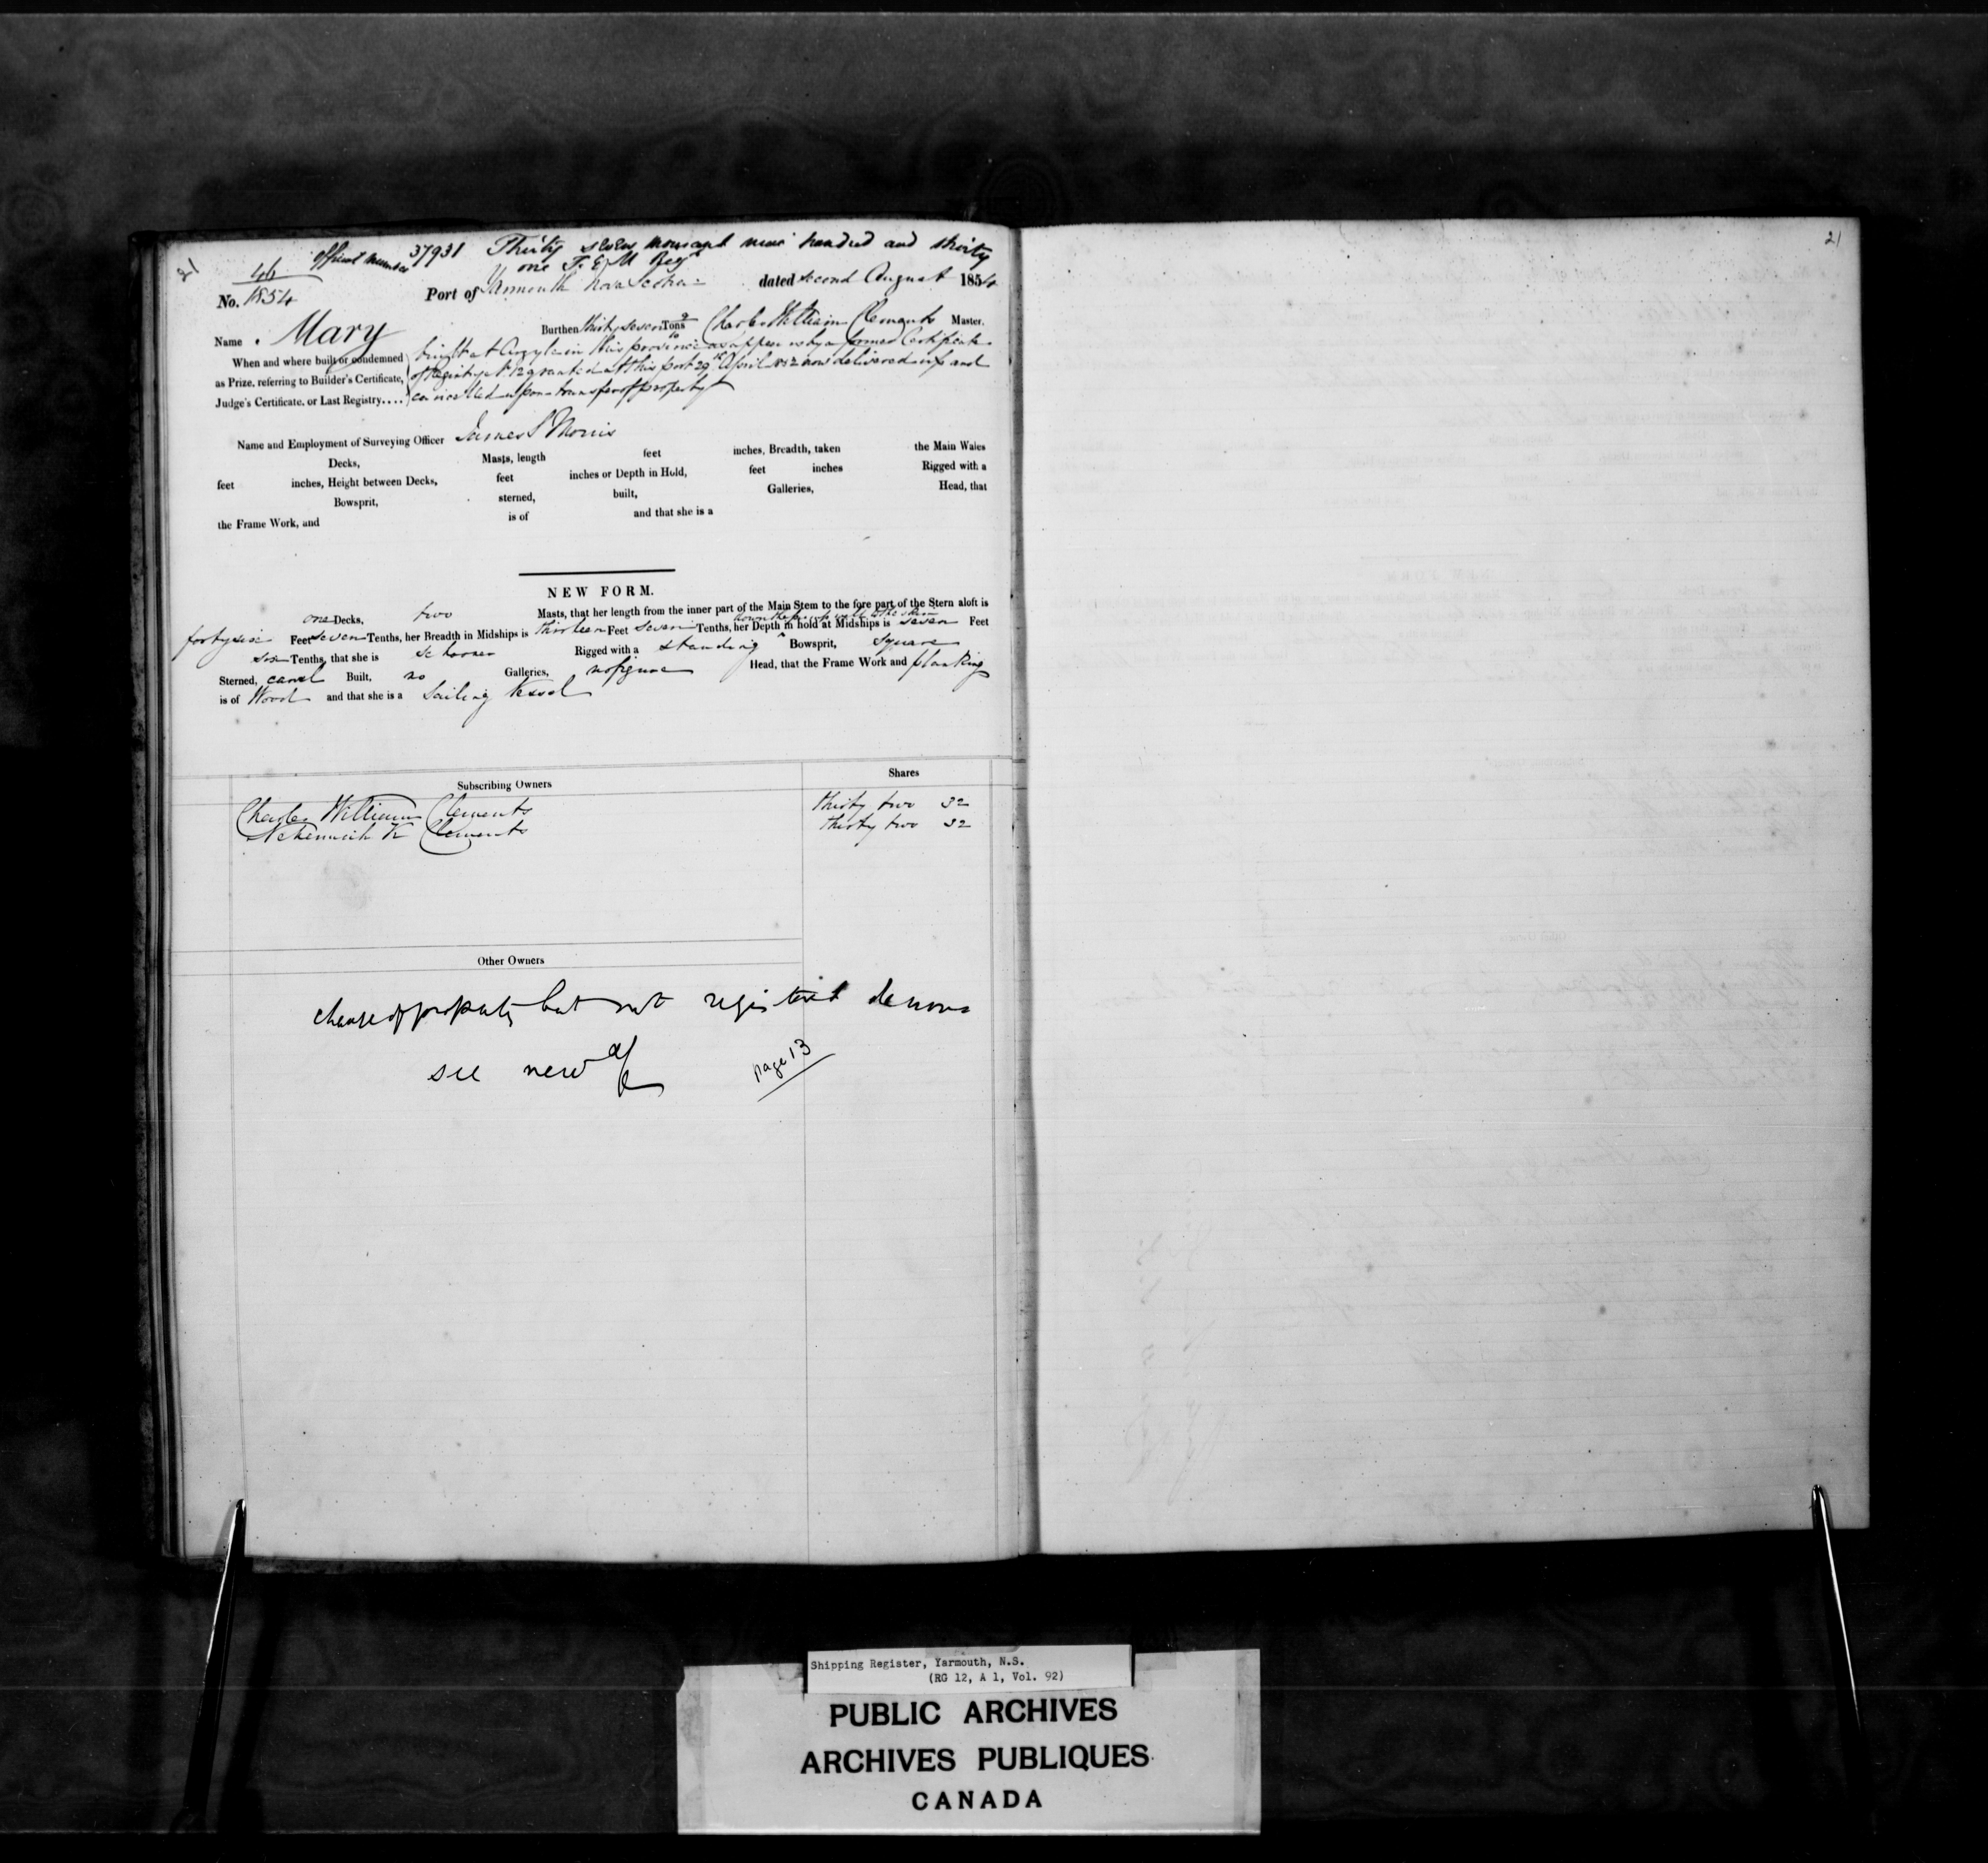 21
Official Number 37931 Thirty seven thousand nine hundred and thirty
one T. E. M Regr
46
No. 1854 Port of Yarmouth Nova Scotia dated second August 1854
Name Mary Burthen thirty seven Tons Charles William Clements Master.
When and where built or condemned built at Argyle in this province as appears by a former Certificate
as Prize, referring to Builder's Certificate, of Registry No 12 granted at this port 29th April 1852 now delivered up and
Judge's Certificate, or Last Registry.... cancelled upon transfer of property
Name and Employment of Surveying Officer James S Morris
Decks, Masts, length feet inches, Breadth, taken the Main Wales
feet inches, Height between Decks, feet inches or Depth in Hold, feet inches Rigged with a
Bowsprit, sterned, built, Galleries, Head, that
the Frame Work, and is of and that she is a
NEW FORM.
one Decks, two Masts, that her length from the inner part of the Main Stem to the fore part of the Stern aloft is
forty six Feet seven Tenths, her Breadth in Midships is thirteen Feet seven Tenths, her Depth in hold at Midships is seven Feet
six Tenths, that she is Schooner Rigged with a standing Bowsprit, square
Sterned, carvel Built, no Galleries, no figure Head, that the Frame Work and planking
is of Wood and that she is a Sailing Vessel
Subscribing Owners Shares
Charles William Clements thirty two 32
Nehemiah K Clements thirty two 32
Other Owners
change of property but not registered de novo
see new a/c page 13
21
Shipping Register, Yarmouth, N.S.
(RG 12, A 1, Vol. 92)
PUBLIC ARCHIVES
ARCHIVES PUBLIQUES
CANADA